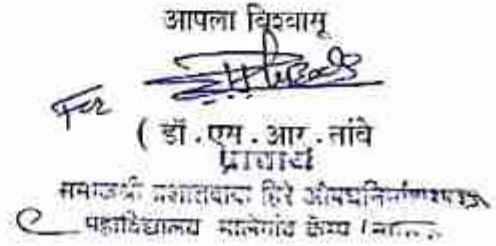 आपला विश्वासू
For
( डॉ. एम. आर. तांबे
प्राचार्य
समाजश्री प्रशांतदादा हिरे औषधनिर्माणशास्त्र
महाविद्यालय मालेगांव कॅम्प (नाशिक